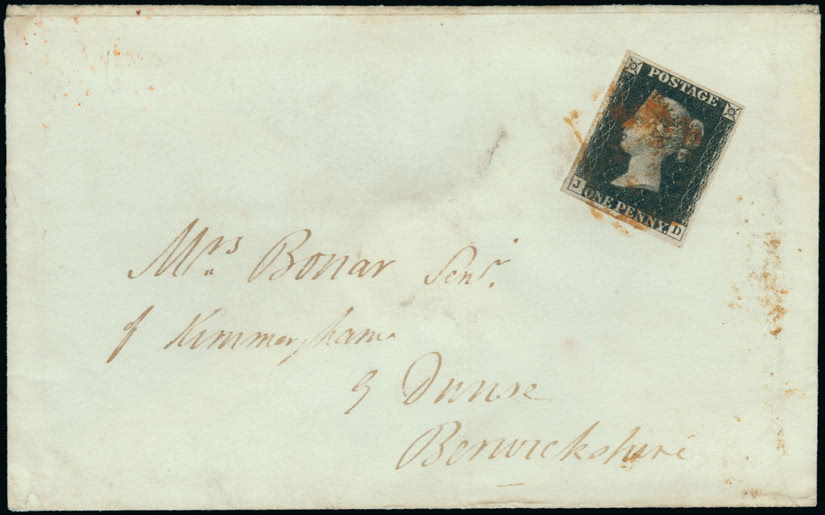 POSTAGE
J ONE PENNY. D
Mrs Bonar Senr.
of Kimmerghame
Dunse
Berwickshire